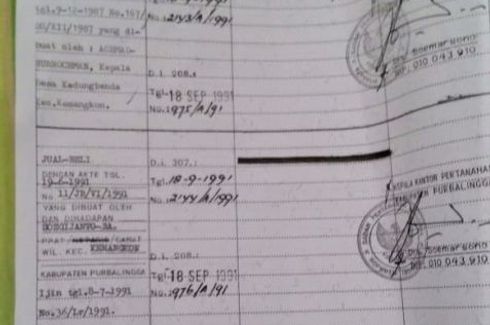 tgl.9-12-1987 No.167/
No.2143/A/991
05/XII/1987 yang di-
buat oleh : ACHMAD
Drs. Soemarsono
NIP. 010 043 910
Kepala
D.i. 208.:
Desa Kedungbenda
Tgl. 18 SEP 1991
Kec.Kemangkon.
No.1975/A/91
JUAL-BELI
D.i. 307.:
DENGAN AKTE TGL.
Tgl. 18-9-1991
19-6-1991
No. 2144/A/991
No 11/JB/VI/1991
KEPALA KANTOR PERTANAHAN
KABUPATEN PURBALINGGA
YANG DIBUAT OLEH
DAN DIHADAPAN
CAMAT
WIL. KEC. KEMANGKON
Drs. Soemarsono
NIP. 010 043 910
D.i. 208.:
KABUPATEN PURBALINGGA
Tgl. 18 SEP 1991
Ijin tgl.8-7-1991
No. 1976/A/91
No.36/Lr/1991.